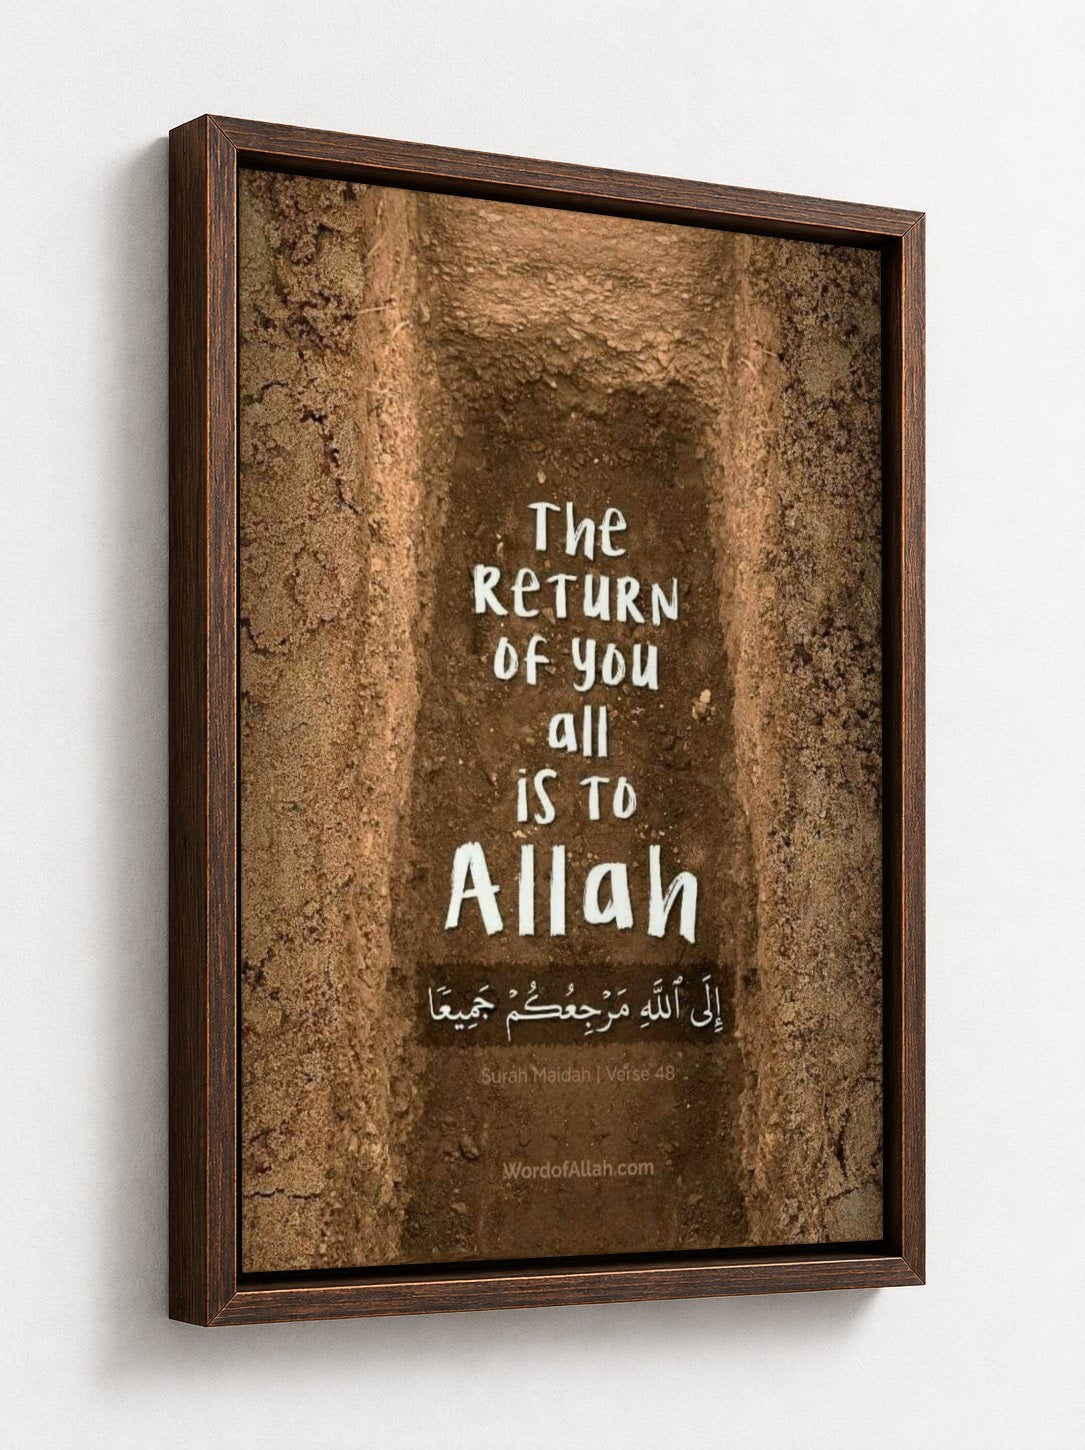 The
RETURN
OF you
all
is TO
Allah
إِلَى ٱللَّهِ مَرْجِعُكُمْ جَمِيعًا
Surah Maidah | Verse 48
WordofAllah.com